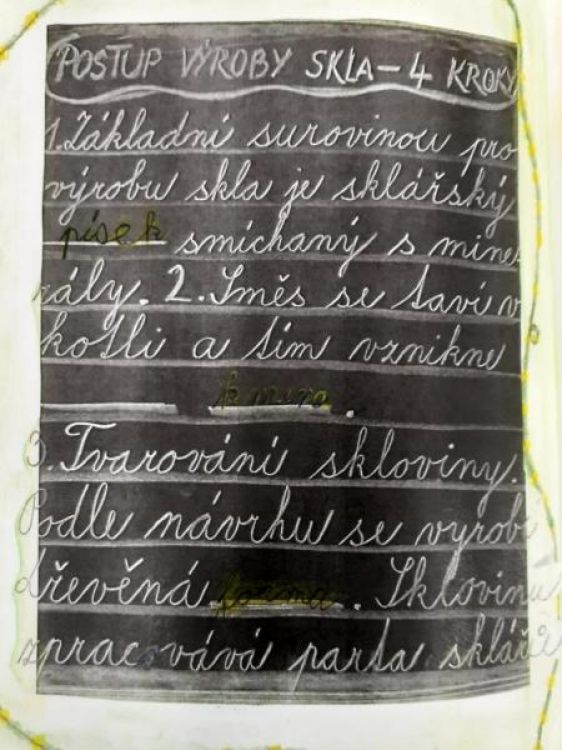 POSTUP VÝROBY SKLA – 4 KROKY
1. Základní surovinou pro
výrobu skla je sklářský
písek smíchaný s mine
rály. 2. Směs se taví v
kotli a tím vznikne
.
3. Tvarování skloviny.
Podle návrhu se vyrobí
dřevěná forma. Sklovinu
zpracovává parta sklářů